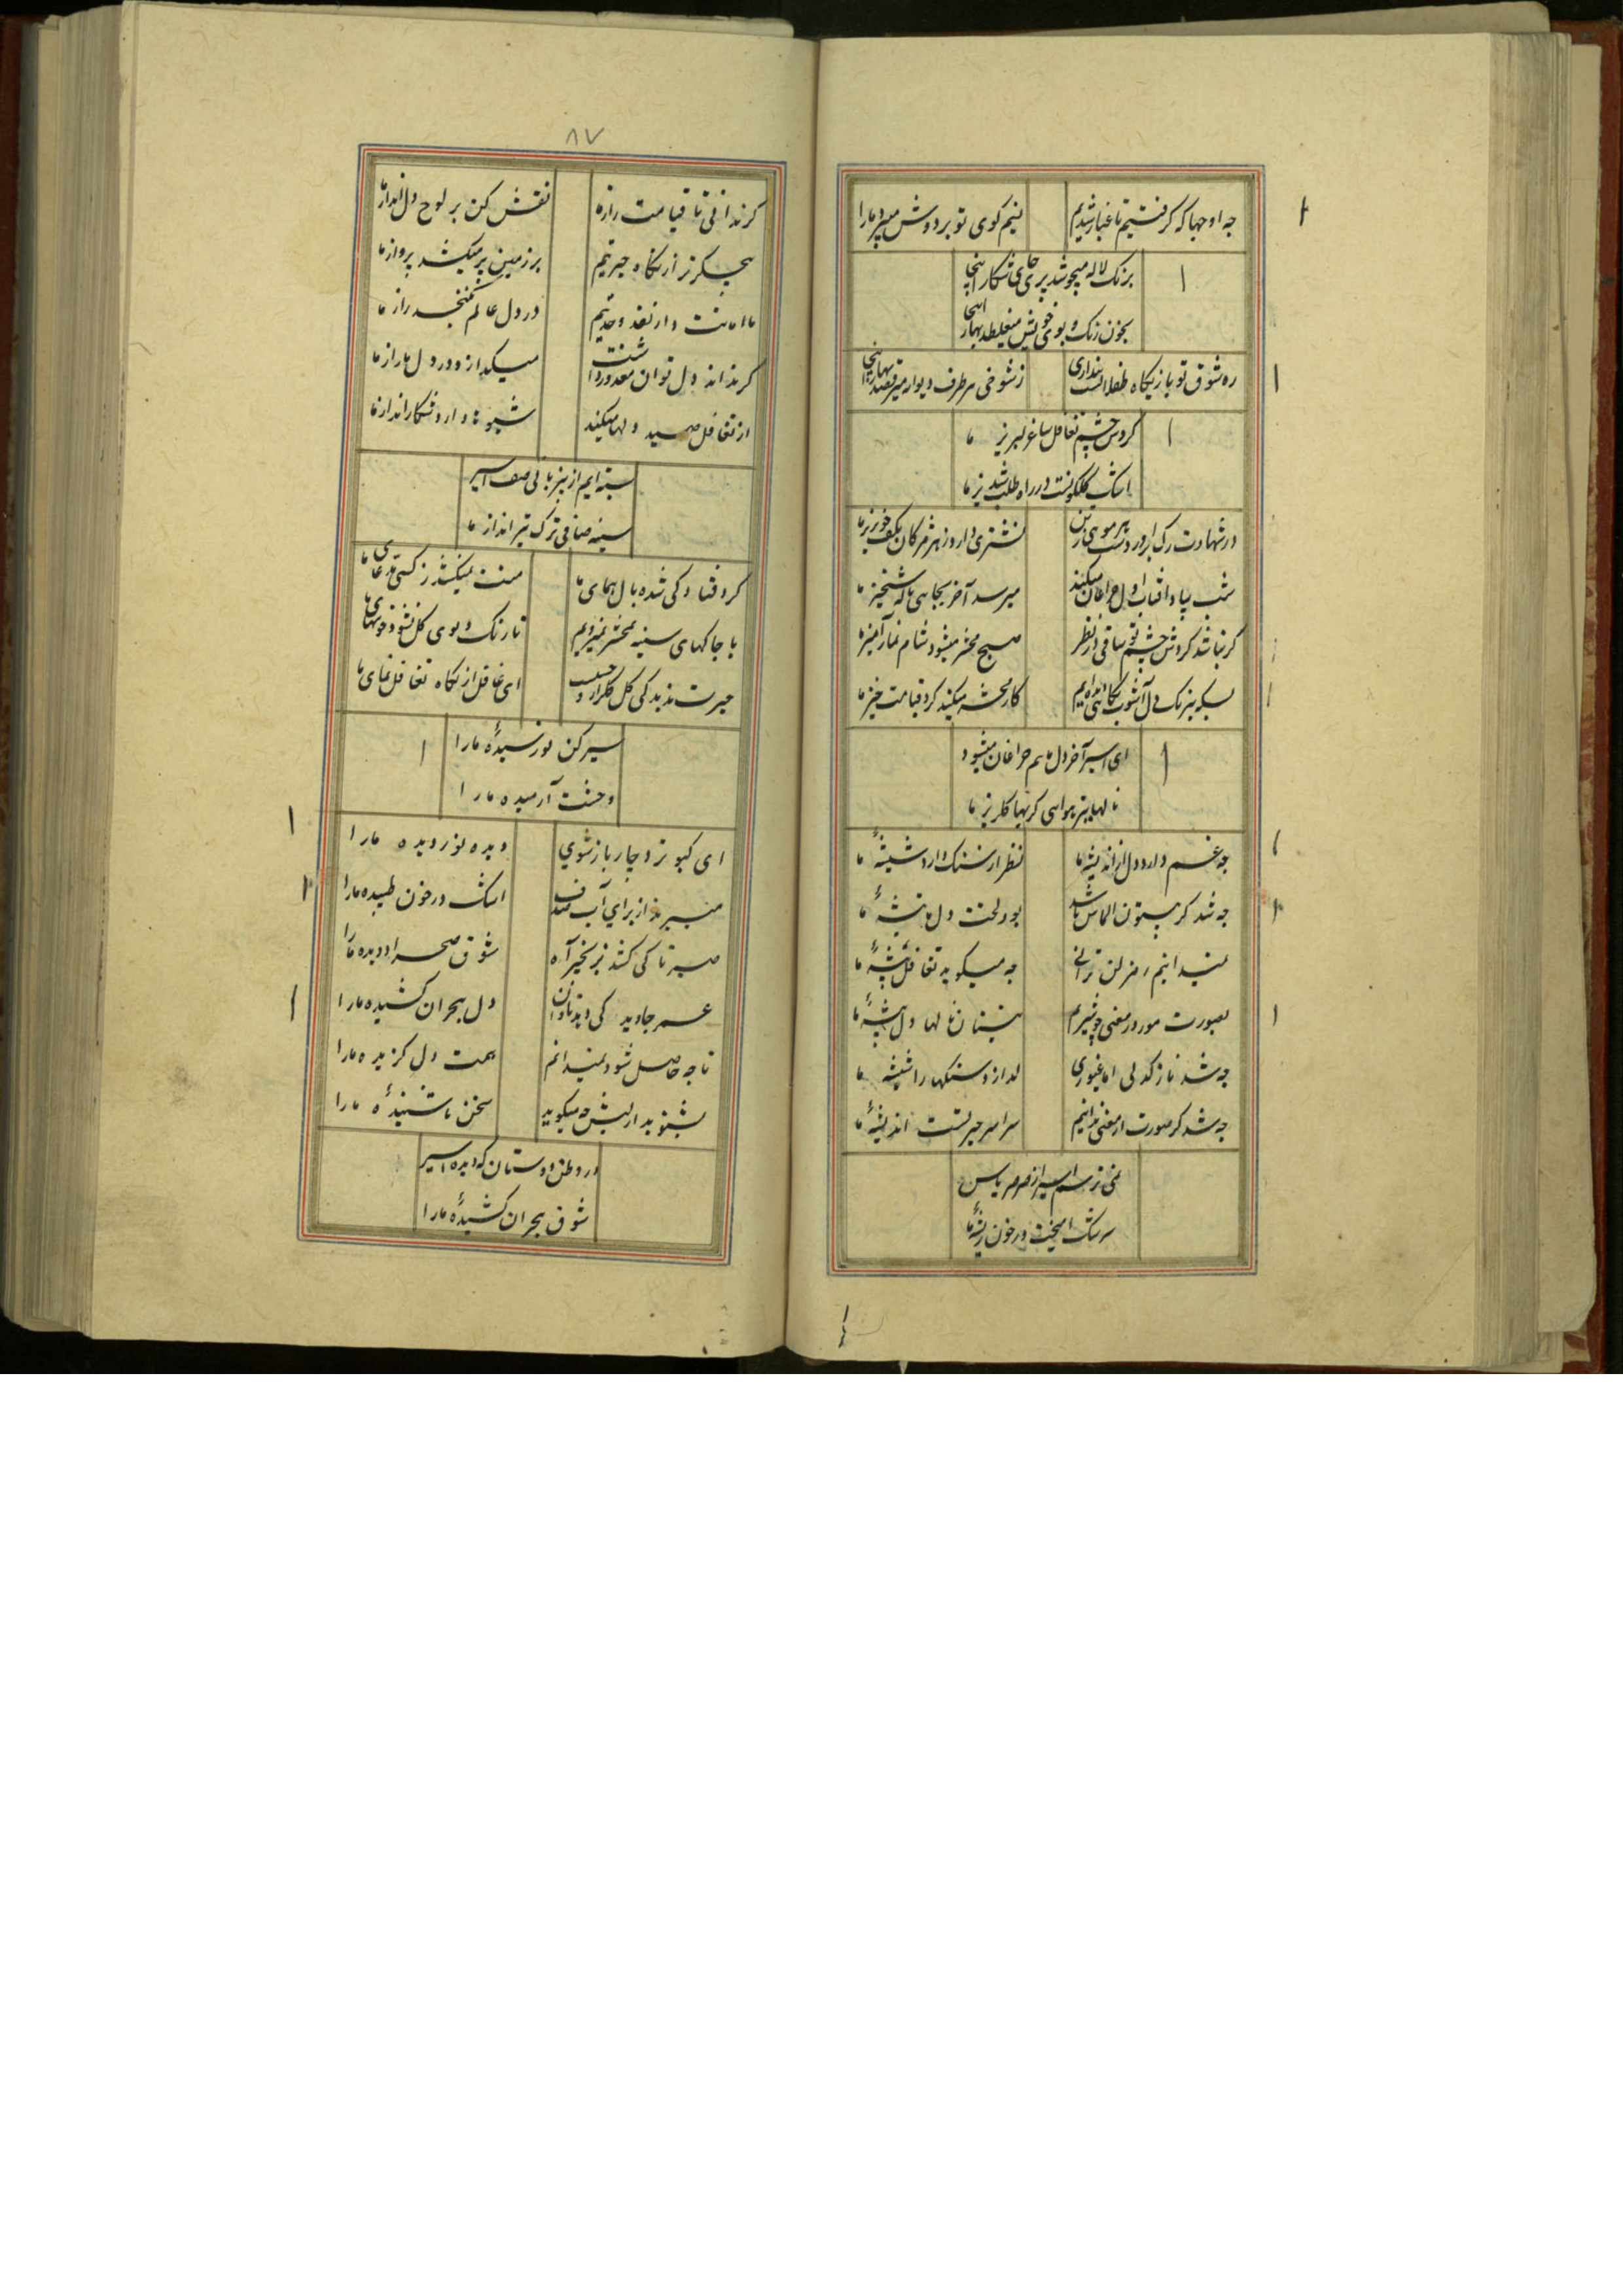 چه اوجها که گرفتیم تا غبار شدیم نیم کوی تو بر دوش میبرد ما را
برنک لاله میجوشد پری جای شکار اینجا
بخون رنک و بوی خویش میغلطد بهار اینجا
ره شوق تو بازیکاه طفلانست پنداری ز شوخی هر طرف دیوار میرقصد اینجا
کردش چشم تغافل ساغر لبریز ما
اشک کلکونست در راه طلب شبدیز ما
در شهادت رک برآورد دست هر موی تن نشتری دارد ز هر مژکان خونریز ما
شب بیاد آفتاب اول چراغان میکند میرسد آخر بجایی ناله شبخیز ما
کر نباشد کردش چشم تو ساقی در نظر صبح محشر میشود شام خمارآمیز ما
بسکه نیرنک دل آشوب کار محشر میکند کرد قیامت خیز ما
ای اسیر آخر دل ما هم چراغان میشود
نالها بر هوای کریها کلریز ما
چه غم دارد دل از اندیشه ما نظر از سنک دارد شیشهٔ ما
چه شد کر بیستون الماس باشد بود لخت دل ما تیشهٔ ما
نمیدانیم رمز لن ترانی چه میکوید تغافل پیشهٔ ما
بصورت مور در معنی چو شیریم نیستان نالها دل بیشهٔ ما
چه شد نازکدلی اما غیوری کدازد سنکها را شیشه ما
چه شد کر صورت از معنی ندانیم سراسر حیرتست اندیشهٔ ما
نمی ترسم اسیر از صرصر یاس
سرشک آمیخت در خون ریشهٔ ما
۸۷
کر ندانی تا قیامت راز ما نقش کن بر لوح دل انداز ما
هیچکس از نکاه حیرتیم بر زمین پر میکشد پرواز ما
ما امانت دار نقد وحدتیم در دل عالم نکنجد راز ما
کر نداند دل توان معذور داشت میکدازد در دل ما راز ما
از تغافل صید دلها میکند شیوها دارد شکارانداز ما
بسته ایم از بیزبانی صف اسیر
سینه صافی ترک تیرانداز ما
کرد فتادکی شده بال همای ما منت نمیکشد ز کسی مدعای ما
با چاکهای سینه بمحشر نمیرویم تا رنک و بوی کل نشود خونبهای ما
حیرت ندیدکی کل کلزار ای غافل از نکاه تغافل نمای ما
سیر کن نورسیدهٔ ما را
وحشت آرمیده ما را
ای کبوتر دچار باز شوی دیده نوردیده ما را
میبرند از برای آب اشک در خون طپیده ما را
صبر تا کی کشد بزنجیر آه شوق صحرا دویده ما را
عمر جاوید کی دل هجران کشیده ما را
تا چه حاصل شود نمیدانم همت دل کزیده ما را
بشنوید از لبش چه میکوید سخن ناشنیدهٔ ما را
در وطن دوستان که دیده اسیر
شوق هجران کشیدهٔ ما را